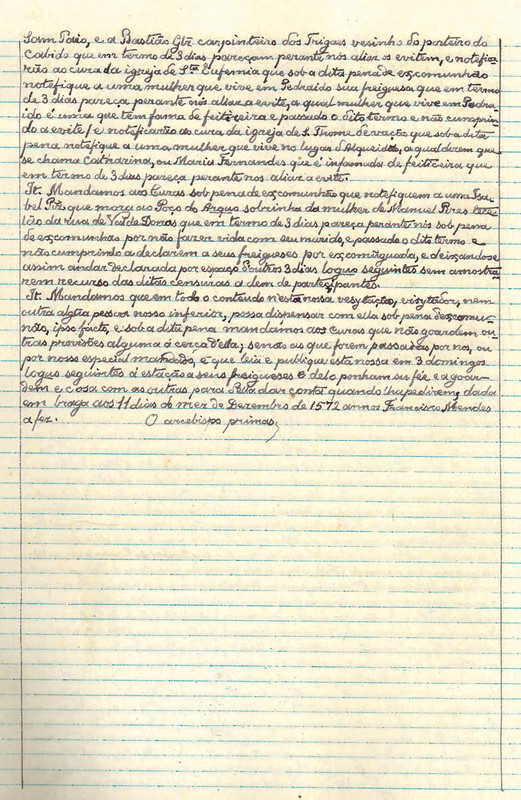 Sam Paio, e a Bastião Glz carpinteiro dos Trigaes vesinho do porteiro do
Cabido que em termo de 3 dias pareçam perante nós aliax os evitem, e notefica-
rão ao cura da igreja de Sta Eufemia que sob a dita pena de excomunhão
notefique a uma mulher que vive em Pedraido sua freiguesa que em termo
de 3 dias pareça perante nós aliax a evite, a qual mulher que vive em Pedra-
ido é uma que tem fama de feiticeira e passado o dito termo e não cumprin-
do a evite / e notificarão ao cura da igreja de S. Thome de vação que sob a dita
pena notefique a uma mulher que vive no lugar d'Algueidas, a qual dizem que
se chama Catharina, ou Maria Fernandes que é infamada de feiticeira que
em termo de 3 dias pareça perante nós aliax a evite.
It. Mandamos aos Curas sob pena de excomunhão que notefiquem a uma Isa-
bel Piz que mora ao Poço do Argus sobrinha da mulher de Manuel Pires
lião da rua de Val de Donas que em termo de 3 dias pareça perante nós sob pena
de excomunhão por não fazer vida com seu marido, e passado o dito termo e
não cumprindo a declarem a seus freigueses por excomungada, e deixando-se
assim andar declarada por espaço d'outros 3 dias logus seguintes sem amostra-
rem recurso das ditas censuras a dem de partecipantes.
It. Mandamos que em todo o contendo n'esta nossa vesytação, vizytador, nem
outra algũa pessoa nosso inferior, possa dispensar com ella sob pena d'excomu-
não, ipso facto, e sob a dita pena mandamos aos curas que não goardem ou-
tras provisões alguma á cerca d'ella; senão as que forem passadas por nos, ou
por nosso especial mandado, e que leia e publique esta nossa em 3 domingos
logus seguintes á estação a seus freigueses e delo ponham su fée e a goar-
dem e cosa com as outras, para d'ella dar conta quando lha pedirem, dada
em braga aos 11 dias do mez de Dezembro de 1572 annos Francisco Mendes
a fez. O arcebispo primas,